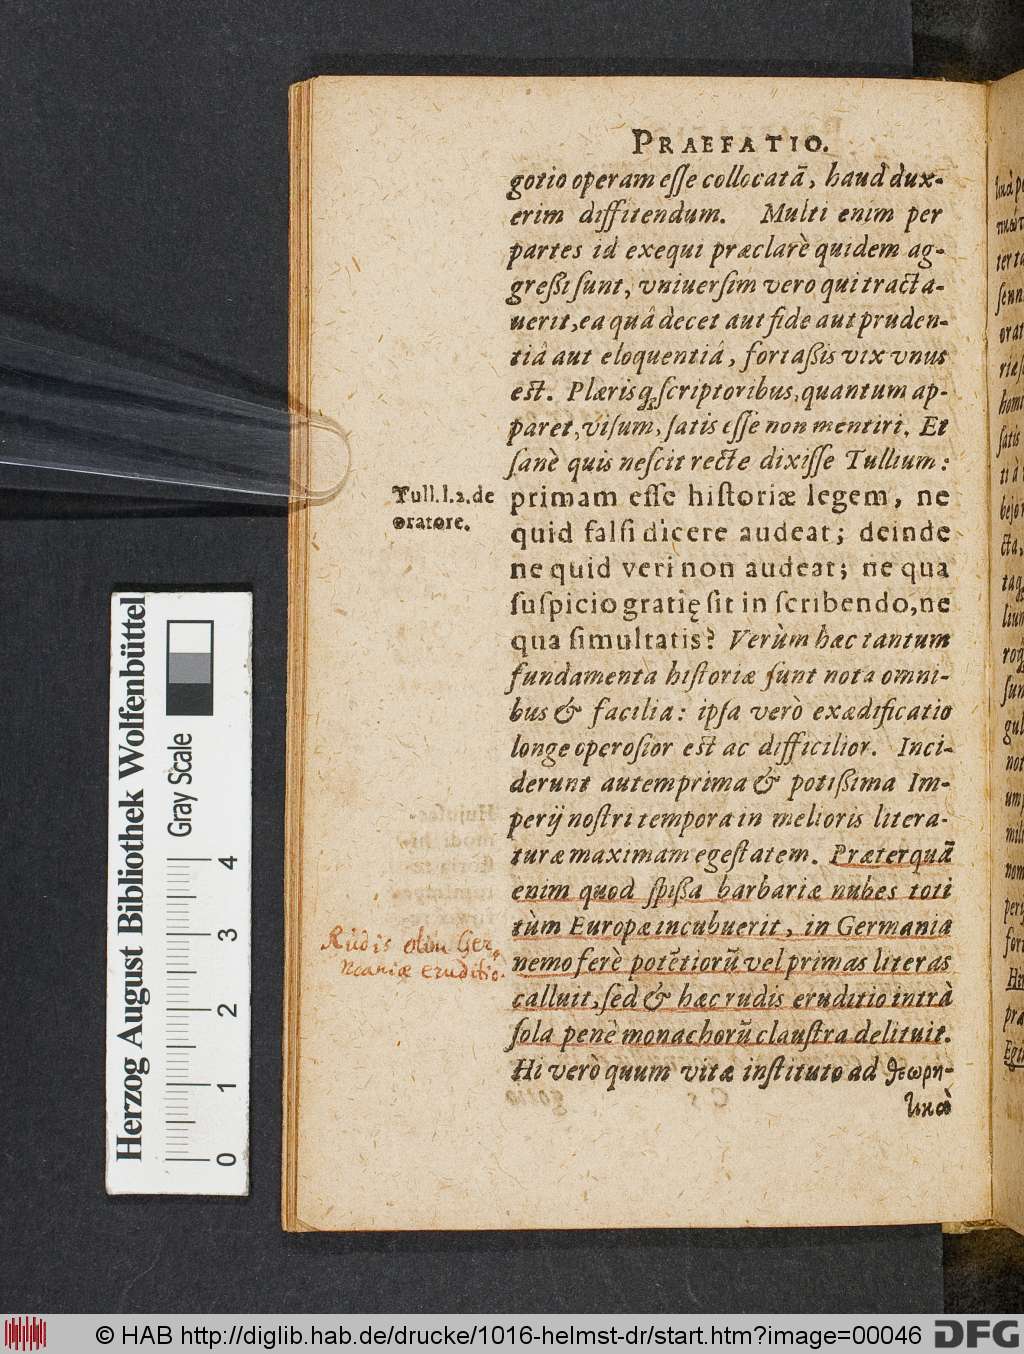 PRAEFATIO.
gotio operam eſſe collocatã, haud dux-
erim diffitendum. Multi enim per
partes id exequi præclarè quidem ag-
greßi ſunt, vniuerſim vero qui tracta-
uerit, ea quâ decet aut fide aut pruden-
tiâ aut eloquentiâ, fortaßis vix vnus
est. Plærisq; ſcriptoribus, quantum ap-
paret, viſum, ſatis eſſe non mentiri. Et
ſanè quis neſcit recte dixiſſe Tullium:
Tull. l. 2. de
oratore.
primam eſſe hiſtoriæ legem, ne
quid falſi dicere audeat; deinde
ne quid veri non audeat; ne qua
ſuſpicio gratię ſit in ſcribendo, ne
qua ſimultatis? Verùm hæc tantum
fundamenta hiſtoriæ ſunt nota omni-
bus & facilia: ipſa verò exædificatio
longe operoſior est ac difficilior. Inci-
derunt autem prima & potißima Im-
perij noſtri tempora in melioris litera-
turæ maximam egeſtatem. Præterquã
enim quod ſpißa barbariæ nubes toti
tùm Europæ incubuerit, in Germania
Rudis olim Ger-
maniæ eruditio.
nemo ferè potẽtiorũ vel primas literas
calluit, ſed & hæc rudis eruditio intrà
ſola penè monachorũ clauſtra delituit.
Hi verò quum vitæ inſtituto ad θεωρη-
τικὰ
Herzog August Bibliothek Wolfenbüttel
Gray Scale
0 1 2 3 4
© HAB http://diglib.hab.de/drucke/1016-helmst-dr/start.htm?image=00046
DFG